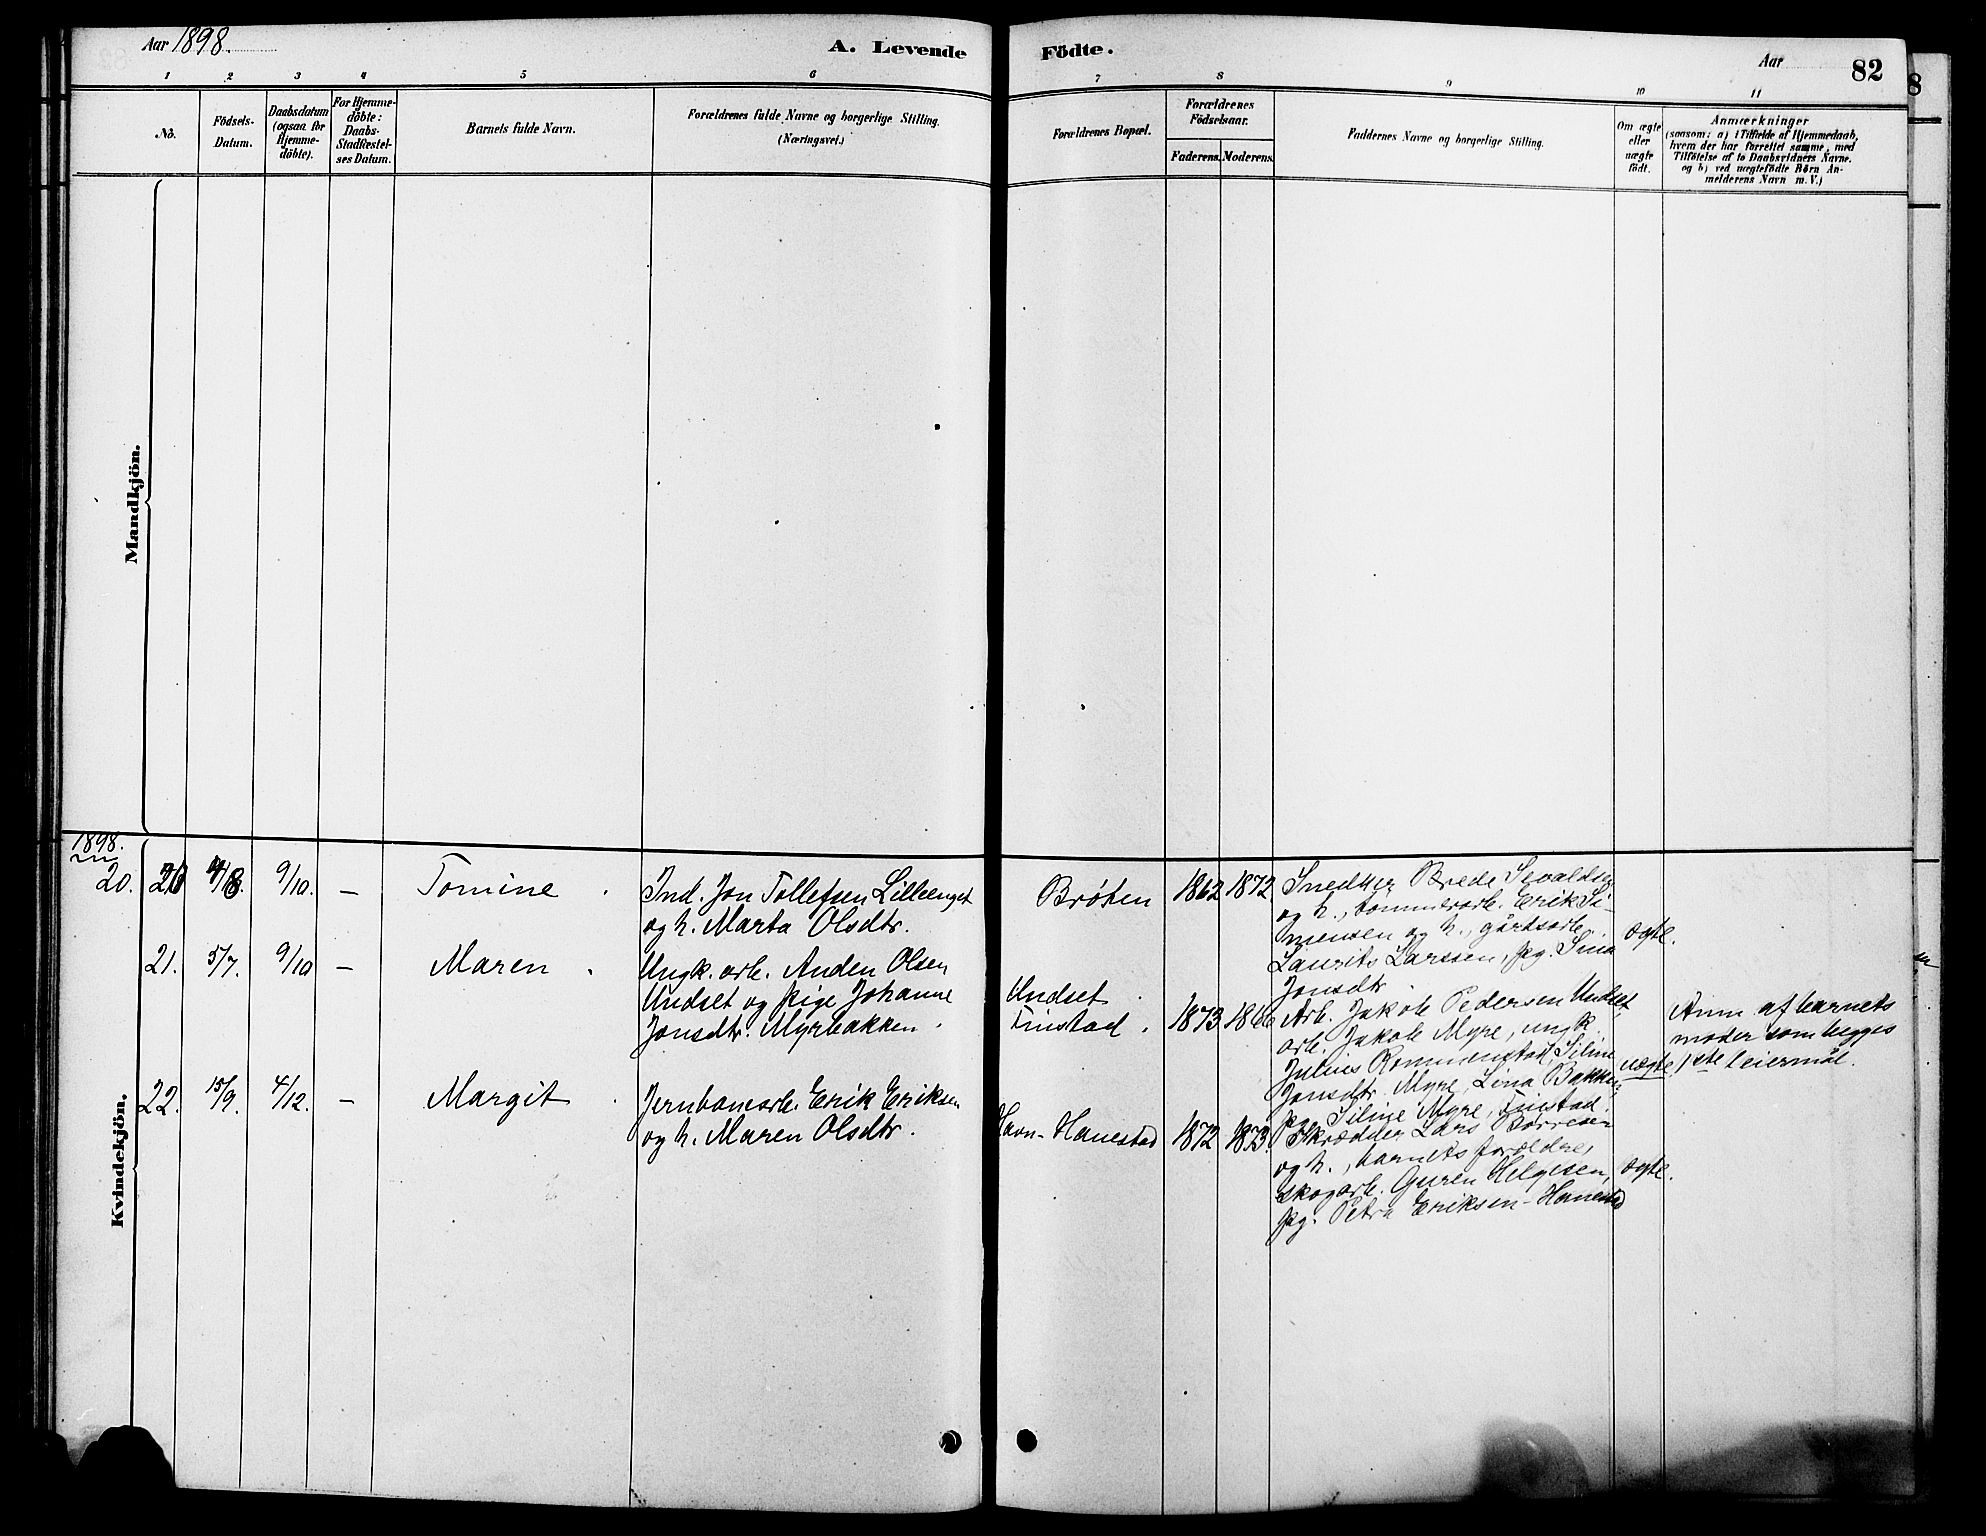 Aar 1898.
A. Levende
Födte.
Aar
82
8
1
2
3
4
5
6
7
8
9
10
11
No.
Födsels-
Datum.
Daabsdatum
(ogsaa for
Hjemme-
döbte).
For Hjemme-
döbte:
Daabs-
Stadfæstel-
ses Datum.
Barnets fulde Navn.
Forældrenes fulde Navne og borgerlige Stilling.
(Næringsvei.)
Forældrenes Bopæl.
Forældrenes
Födselsaar.
Faderens. Moderens.
Faddernes Navne og borgerlige Stilling.
Om ægte
eller
uægte
födt.
Anmærkninger
(saasom: a) i Tilfælde af Hjemmedaab,
hvem der har forrettet samme, med
Tilföielse af to Daabsvidners Navne.
og b) ved uægtefödte Börn An-
melderens Navn m. V.)
Mandkjön.
Kvindekjön.
1898.
20. 20 4/8. 9/10. — Tomine
Ind. Jon Tollefsen Lilleenget
og h. Marta Olsdtr.
Brøten 1862 1872
Snedker Brede Sevaldsen
og h., tømmerarb. Erik Si-
mensen og h., gårdsarb.
Laurits Larssen, pg. Sina
Jonsdtr.
ægte.
21. 5/7. 9/10 — Maren
Ungk. arb. Anden Olsen
Undset og pige Johanne
Jonsdtr. Myrbakken.
Undset
Finstad. 1873 1866
Arb. Jakob Pedersen Undset,
arb. Jakob Myre, ungk.
Julius Rommenstad, Siline
Jonsdtr. Myre, Lina Bakken,
pg. Siline Myre, Finstad.
uægte
Anm af barnets
moder som begges
1ste leiermål.
22. 15/9. 4/12. — Margit
Jernbanearb. Erik Eriksen
og h. Maren Olsdtr.
Havn-Hanestad 1872 1873.
Skrædder Lars Børresen
og h., barnets forældre,
skogarb. Guren Helgesen,
pg. Petra Eriksen-Hanestad
ægte.